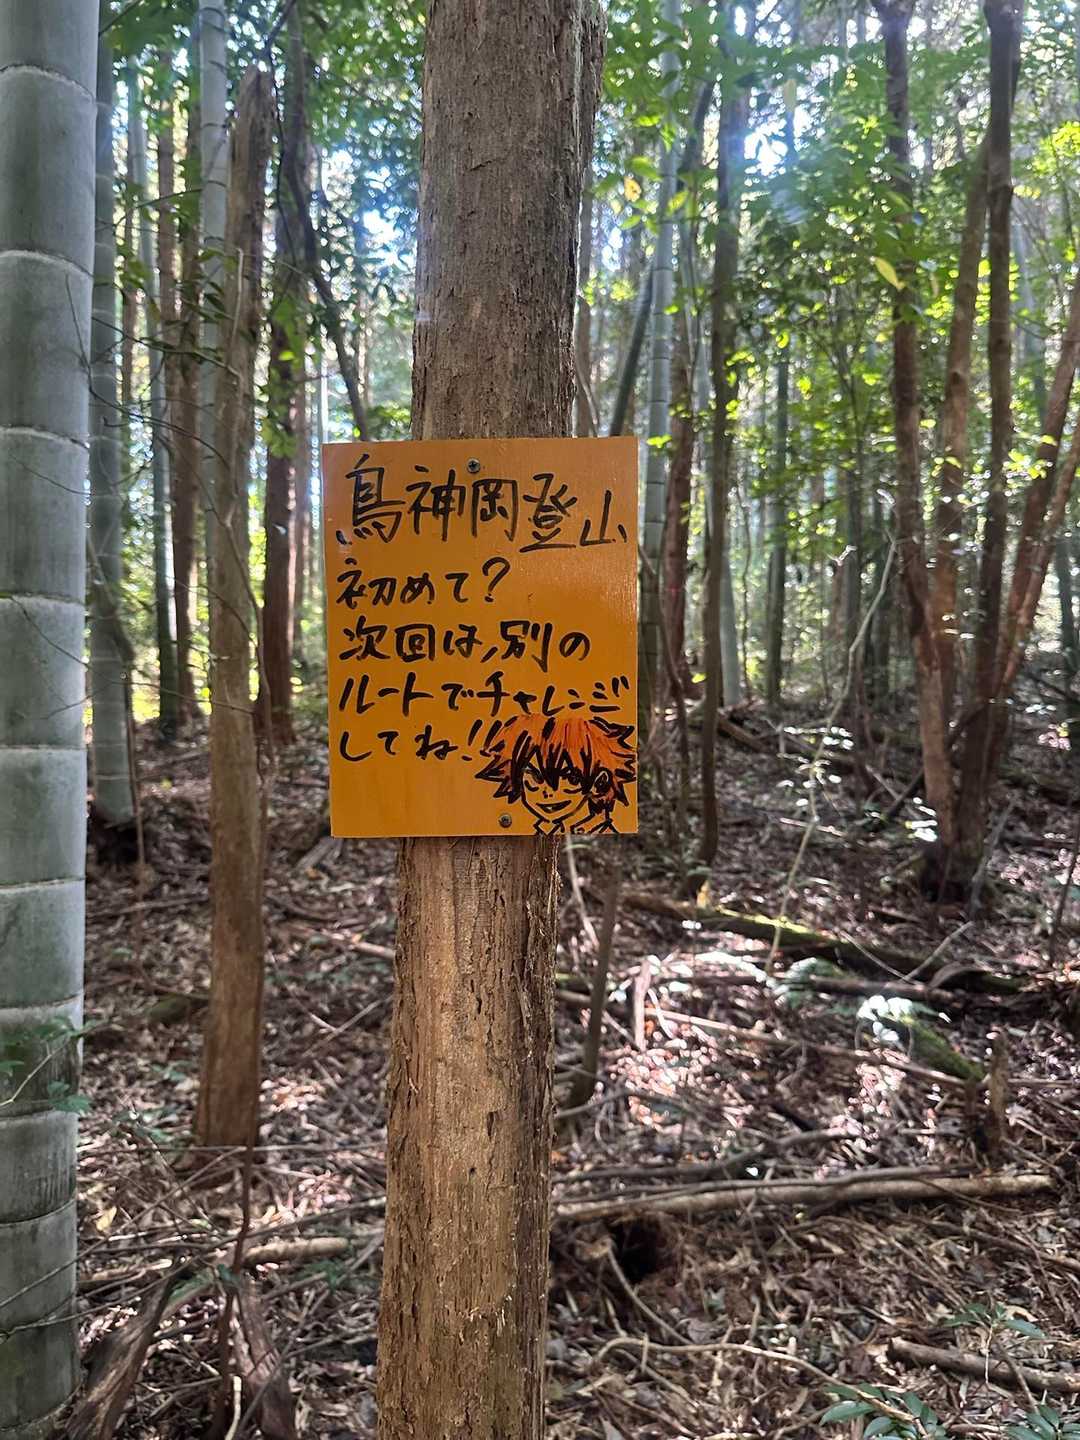 鳥神岡登山
初めて?
次回は、別の
ルートでチャレンジ
してね!!